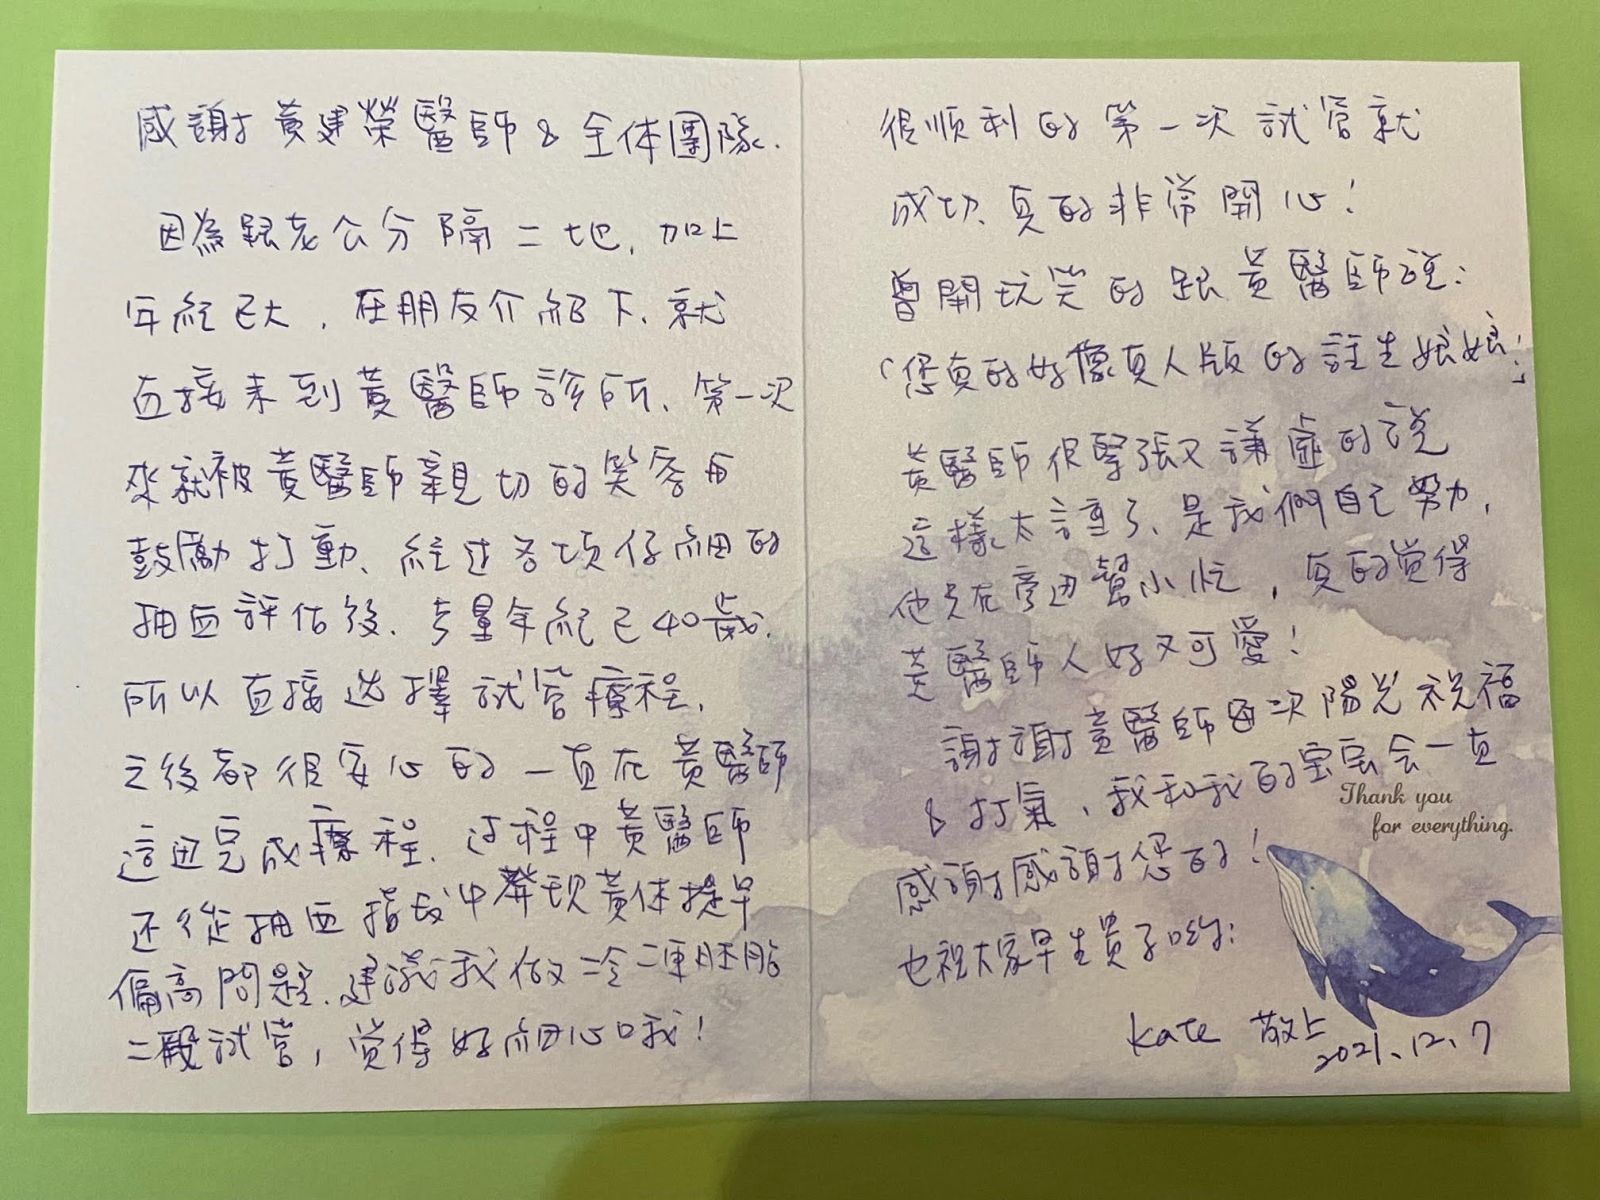 感謝黃建榮醫師&全体團隊.
因為跟老公分隔二地, 加上
年紀已大, 在朋友介紹下、就
直接來到黃醫師診所、第一次
來就被黃醫師親切的笑容再
鼓勵打動、經过各項仔細的
抽血評估後、考量年紀已40歲.
所以直接选擇試管療程,
之後都很安心的一直在黃醫師
這边完成療程、过程中黃醫師
还從抽血指数中發現黃体提早
偏高問題、建議我做冷凍胚胎
二段試管, 覚得好細心哦!
很順利的第一次試管就
成功、真的非常開心!
曾開玩笑的跟黃醫師說:
「您真的好像真人版的註生娘娘!」
黃醫師很緊張又謙虛的說
這樣太沉重了、是我們自己努力,
他只在旁边幫小忙, 真的覚得
黃醫師人好又可愛!
謝謝黃醫師每次陽光祝福
&打氣、我和我的宝宝会一直
感謝感謝您的!
也祝大家早生貴子喲:
Thank you
for everything.
Kate 敬上
2021.12.7